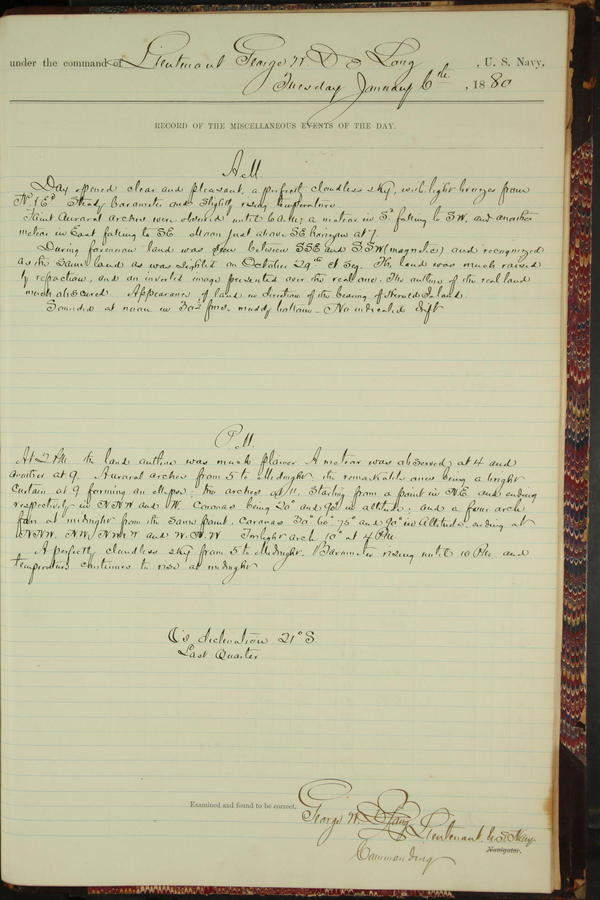 under the command of Lieutenant George W. De Long, U. S. Navy,
Tuesday January 6th, 1880
RECORD OF THE MISCELLANEOUS EVENTS OF THE DAY.
A.M.
Day opened clear and pleasant, a perfectly cloudless sky, with light breezes from
N. & Ed. Steady barometer and slightly rising temperature.
Faint Auroral arches were observed until 6 a.m.; a meteor in Sd. falling to SW. and another
meteor in East falling to SE. Moon just above SE horizon at 7
During forenoon land was seen between SSE and SSW (magnetic) and recognized
as the same land as was sighted on October 29th et seq. The land was much raised
by refraction, and an inverted image presented over the real one. The outline of the real land
much obscured. Appearance of land in direction of the bearing of Herald Island.
Sounded at noon in 30½ fms. muddy bottom - No indicated drift
P.M.
At 2 PM the land outline was much plainer. A meteor was observed at 4 and
another at 9. Auroral arches from 5 to Midnight the remarkable ones being a bright
Curtain at 9 forming an ellipse; two arches at 11, starting from a point in N.E. and ending
respectively in NNW and W. Coronas being 20° and 90° in altitude; and a four arch
fan at midnight from the same point. Coronas 30° 60° 75° and 90° in Altitude, ending at
NNW. NW. NW by W and W.N.W. Twilight arch 10° at 4 PM.
A perfectly cloudless sky from 5 to Midnight. Barometer rising until 10 PM. and
temperature continues to rise at midnight
☾'s declination 21° S.
Last Quarter
Examined and found to be correct.
George W. De Long Lieutenant U.S. Navy
Navigator.
Commanding